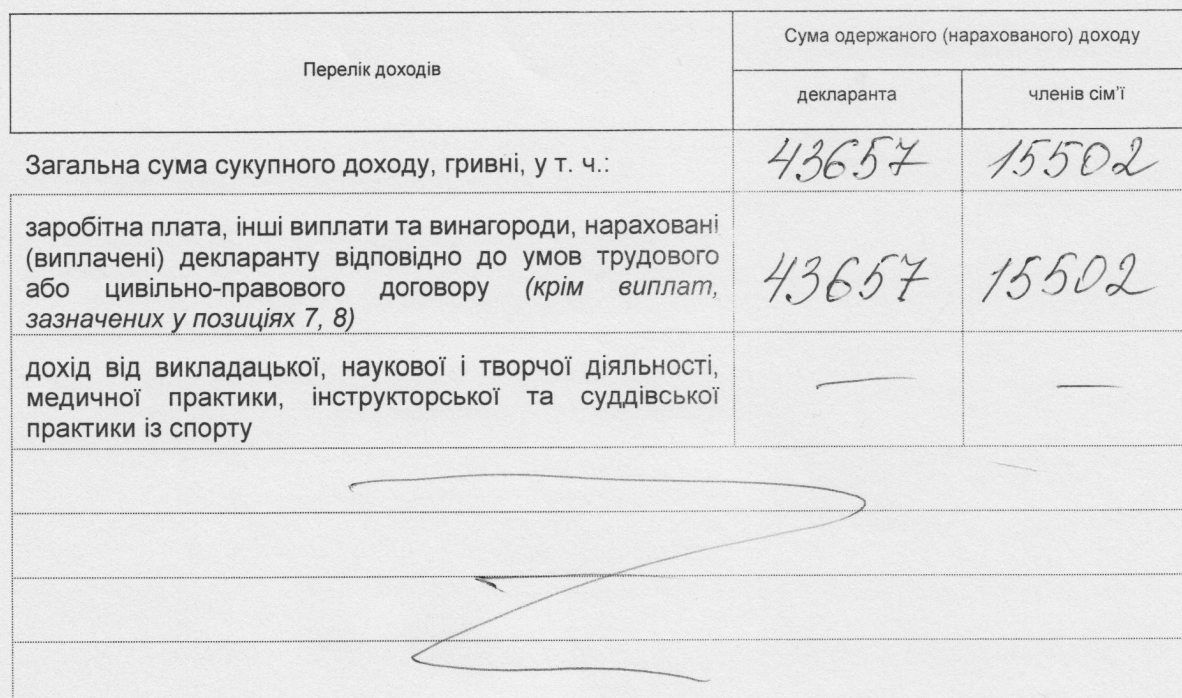 Перелік доходів
Сума одержаного (нарахованого) доходу
декларанта
членів сім'ї
Загальна сума сукупного доходу, гривні, у т. ч.:
43657
15502
заробітна плата, інші виплати та винагороди, нараховані
(виплачені) декларанту відповідно до умов трудового
або цивільно-правового договору (крім виплат,
зазначених у позиціях 7, 8)
43657
15502
дохід від викладацької, наукової і творчої діяльності,
медичної практики, інструкторської та суддівської
практики із спорту
—
—